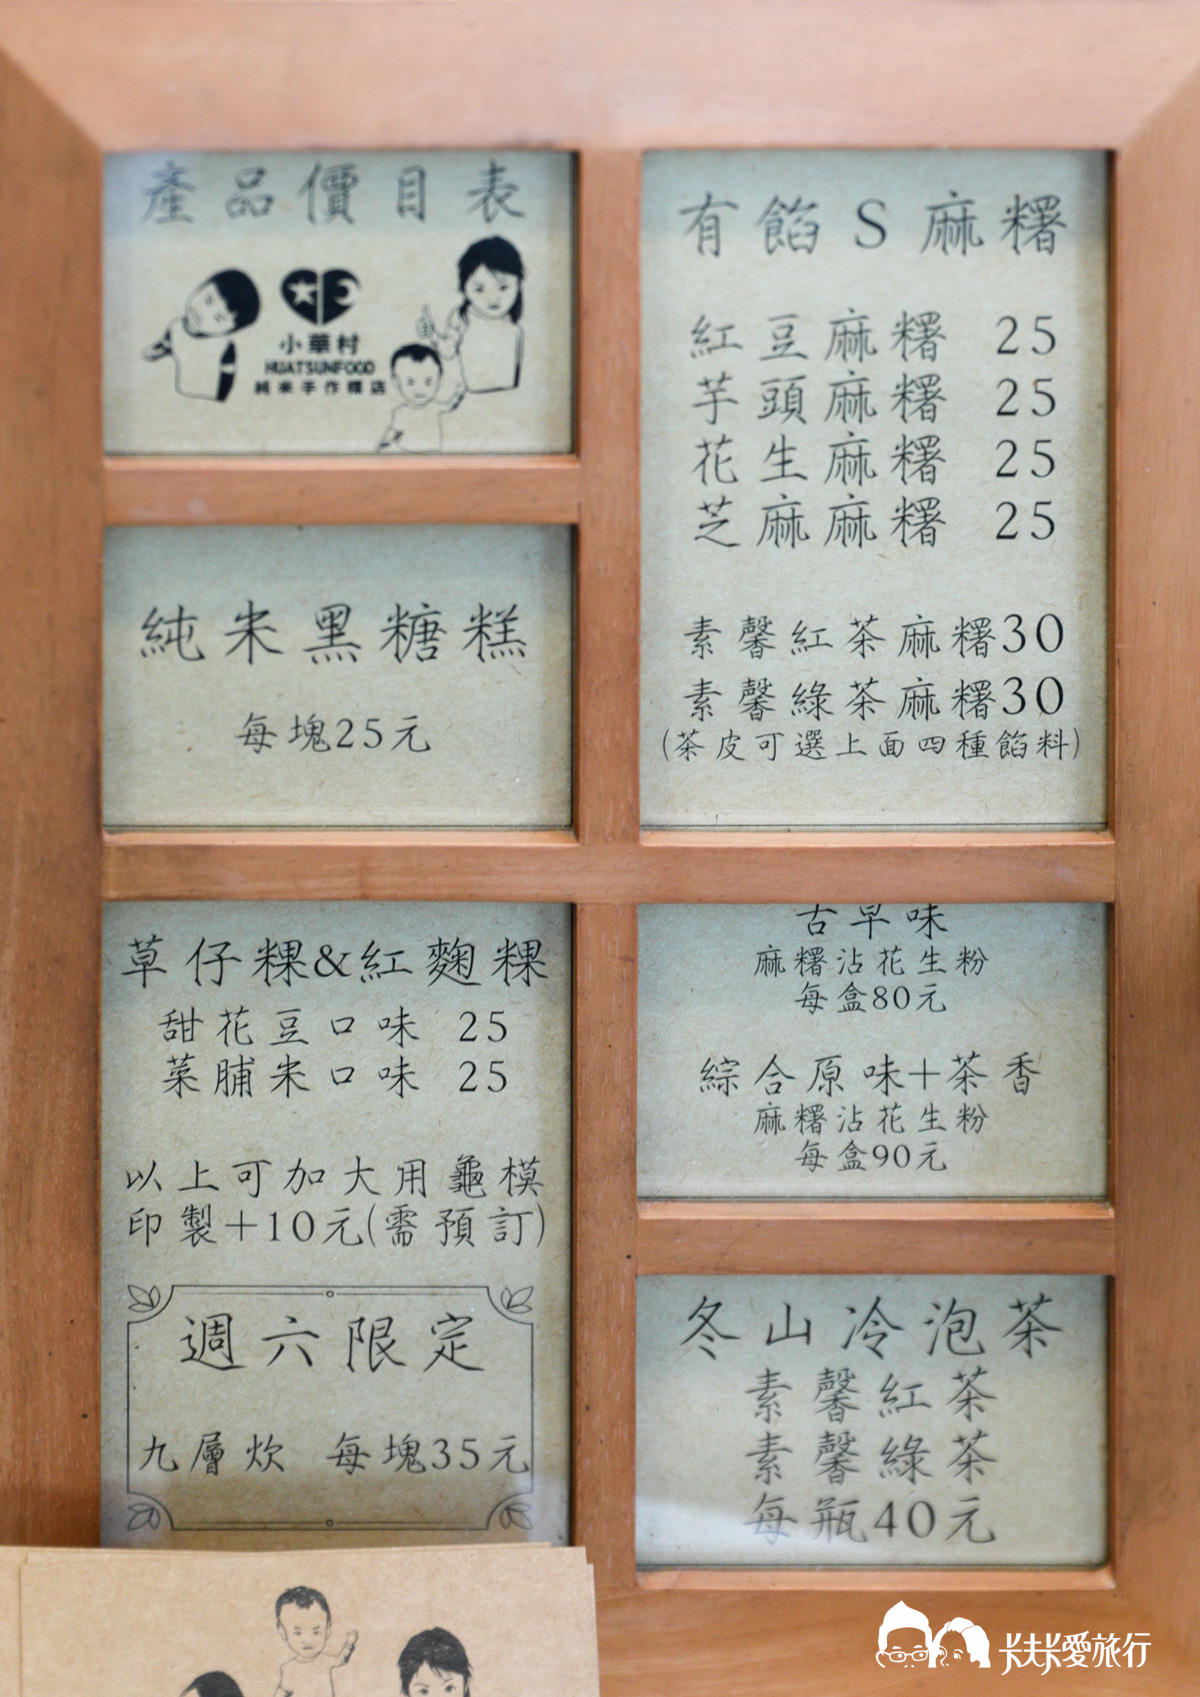 產品價目表
小華村
HUATSUNFOOD
純米手作粿店
純米黑糖糕
每塊25元
草仔粿&紅麴粿
甜花豆口味 25
菜脯米口味 25
以上可加大用龜模
印製+10元(需預訂)
週六限定
九層炊 每塊35元
有餡S麻糬
紅豆麻糬 25
芋頭麻糬 25
花生麻糬 25
芝麻麻糬 25
素馨紅茶麻糬30
素馨綠茶麻糬30
(茶皮可選上面四種餡料)
古早味
麻糬沾花生粉
每盒80元
綜合原味+茶香
麻糬沾花生粉
每盒90元
冬山冷泡茶
素馨紅茶
素馨綠茶
每瓶40元
卡夫卡愛旅行